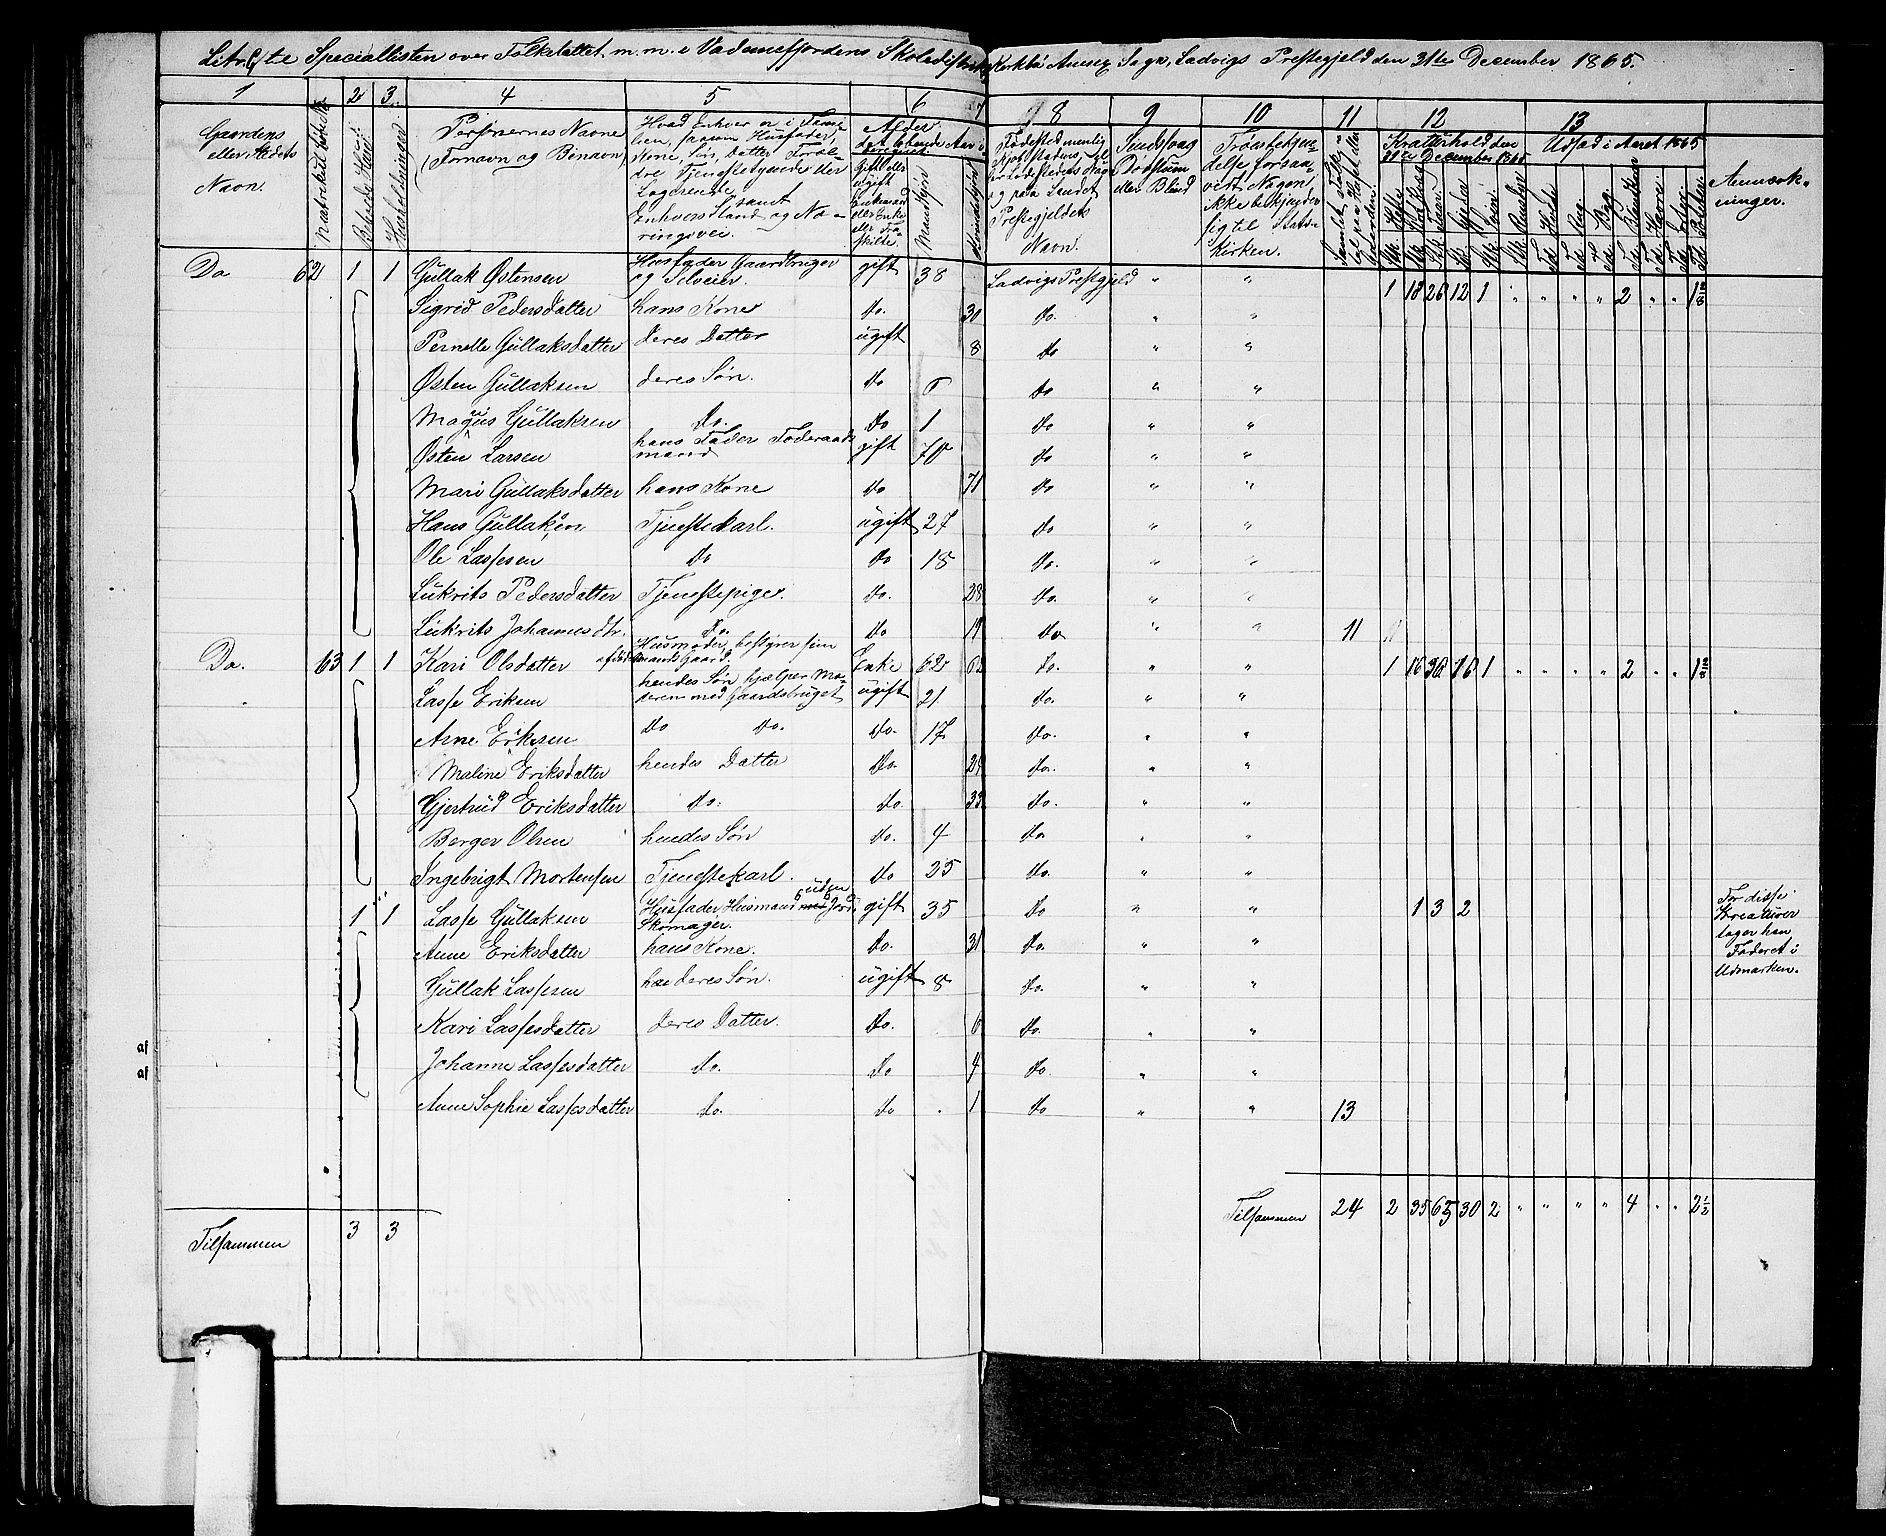 Litr. C te Speciallisten over Folketallet m. m. i Vadeimsfjordens Skoledistrikt, Kirkebø Annex Sogn, Ladvigs Prestegjeld den 31te December 1865.
1 2 3. 4 5 6 7 8 9 10 11 12 13
Gaardens eller Stedets Navn.
Matrikel
Beboede Huse
Husholdninger
Personernes Navne (Fornavn og Binavn)
Hvad Enhver er i Familien, saasom Husfader, Kone, Søn, Datter, Foræl- dre, Tjenestetyende eller Logerende samt Enhvers Stand og Næ- ringsvei.
Alder det løbende Aar iberegnet.
Gift eller ugift Enkemand eller Enke eller Fra- skilte.
Mandkjøn
Kvindekjøn
Fødested nemlig Kjøbstadens eller Ladestedets Navn og paa Landet Prestegjeldets Navn.
Sindssvag Døvstum eller Blind
Troesbekjen- delse forsaa- vidt Nogen ikke bekjender sig til Stats- Kirken.
Kreaturhold den 31te December 1865
Udsæd i Aaret 1865
Anmærk- ninger.
Do 62 1 1 Gullak Østensen Husfader Gaardbruger og Selveier. gift 38 Ladvigs Prestegjeld " " 1 18 26 12 1 " " " " 2 " " 1 2/8
Sigrid Pedersdatter hans Kone do. 30 do. " "
Pernelle Gullaksdatter deres Datter ugift 8 do " "
Østen Gullaksen deres Søn. do 5 do " "
Magnus Gullaksen Do. do 1 do " "
Østen Larsen hans Fader Føderaads mand gift 70 do " "
Mari Gullaksdatter hans Kone do 71 do " "
Hans Gullaksen Tjenestekarl. ugift 27 do " "
Ole Lassesen do do 18 do. " "
Lukrits Pedersdatter Tjenestepiger. do. 28 do. " "
Lukrits Johannesdtr. do. do 19 do " " 11
Do. 63 1 1 Kari Olsdatter Husmoder, bestyrer sin afdøde Mands Gaard. Enke 62 do. " " 1 16 36 16 1 " " " " 2 " " 1 2/8
Lasse Eriksen hendes Søn hjælper Mo- deren med Gaardsbruget ugift 21. do. " "
Arne Eriksen do do. do. 17 do. " "
Maline Eriksdatter hendes Datter do. 29 do. " "
Gjertrud Eriksdatter do. do 33 do. " "
Berger Olsen hendes Søn do. 4 do. " "
Ingebrigt Mortensen Tjenestekarl. do 25 do. " "
1 1 Lasse Gullaksen Husfader Husmand uden Jord Skomager. gift 35 do " " 1 3 2 For disse Kreaturer tager han Foderet i Udmarken.
Anne Eriksdatter hans Kone. do. 31 do. " "
Gullak Lassesen deres Søn. ugift 8 do. " "
Kari Lassesdatter deres Datter. do. 6 do. " "
Johanne Lassesdatter do. do 4 do. " "
Anne Sophie Lassesdatter do. do 1 do " " 13
Tilsammen 24 2 35 65 30 2 " " " " 4 " " 2 1/2
Tilsammen 3 3
af
af